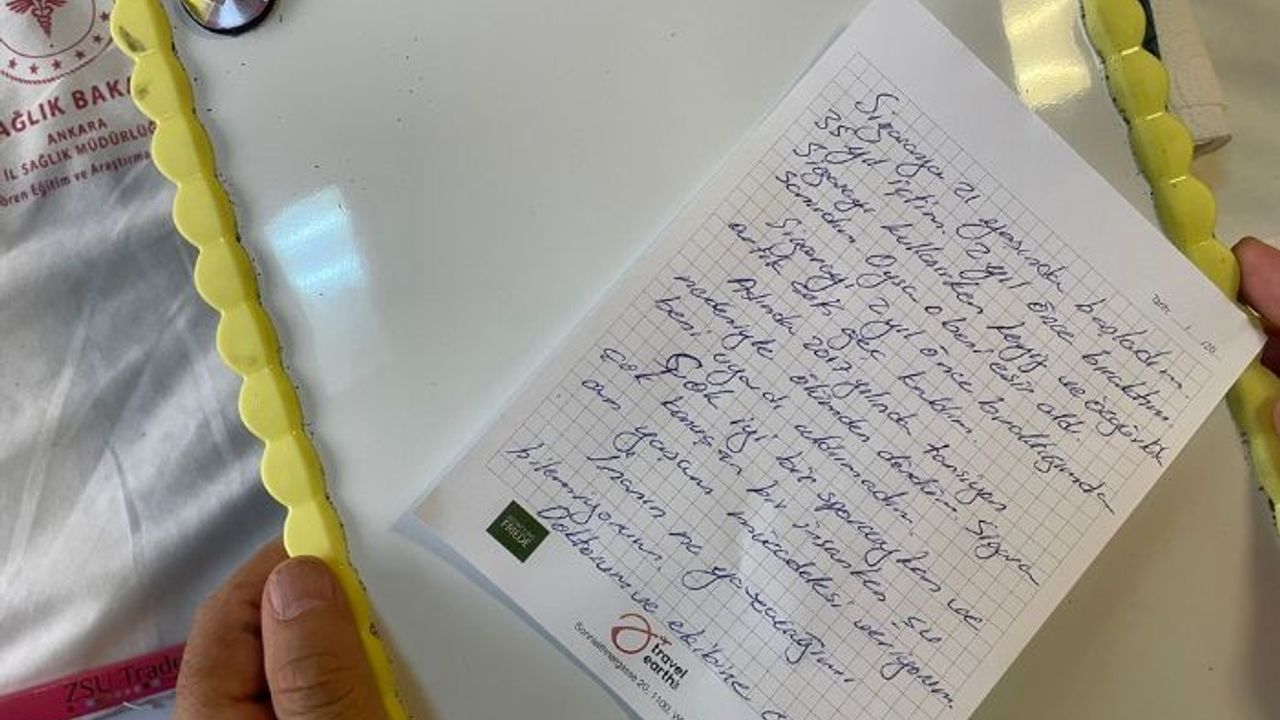 SAĞLIK BAKA
ANKARA
İL SAĞLIK MÜDÜRLÜĞ
ören Eğitim ve Araştırma
ZSU Trade
Tarih: / /20
Sigaraya 21 yaşında başladım
35 yıl içtim. 2 yıl önce bıraktım.
Sigarayı kullanırken keyif ve özgürlük
sandım Oysa o beni esir aldı.
Sigarayı 2 yıl önce bıraktığımda
artık çok geç kaldım.
Aslında 2017 yılında tansiyon
nedeniyle ölümden döndüm. Sigara
beni uyardı aldırmadım.
Çok iyi bir sporcuyken ve
çok karınca bir insanken şu
an yaşam mücadelesi veriyorum.
İnanın ne yazacağımı
bilemiyorum
Doktoruma ve ekibine
FRIEDE
travel
earth
Sonnwendgasse 20, 1100, W